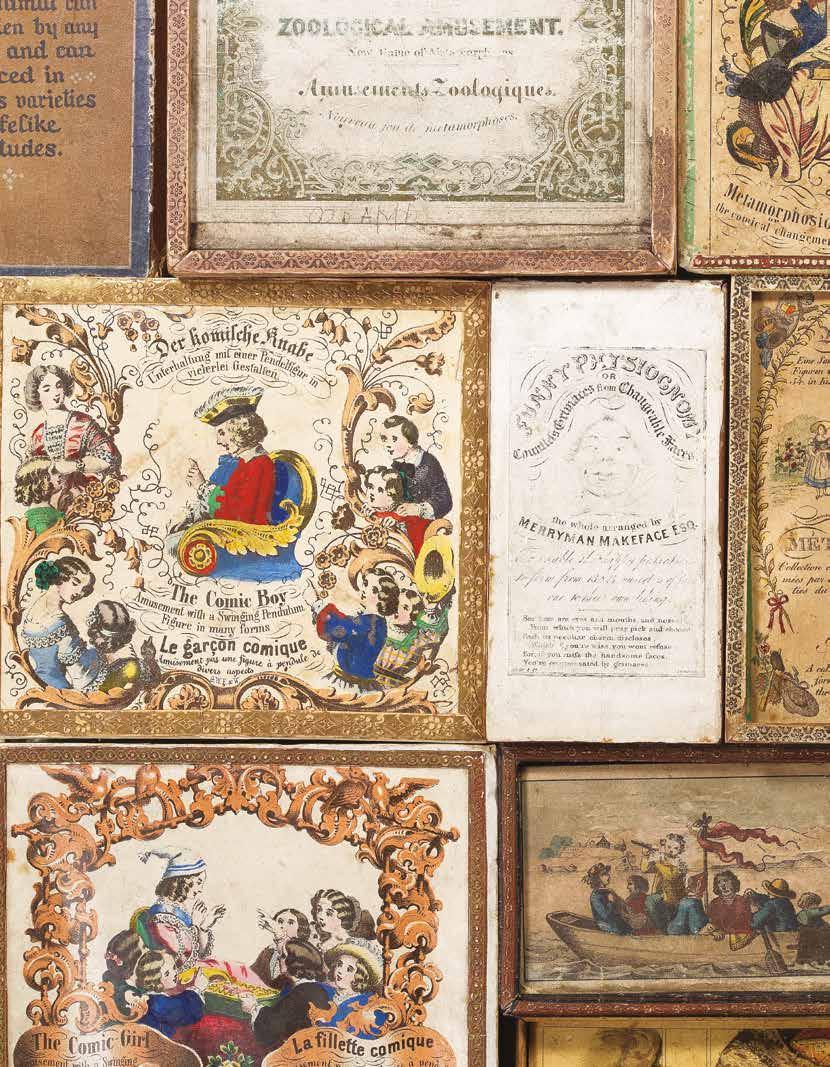 en by any
and can
ced in
s varieties
felike
tudes.
ZOOLOGICAL AMUSEMENT.
New Game of Metamorphoses
Amusements Zoologiques.
Nouveau jeu de metamorphoses.
Metamorphosi
or
the comical changeme
Der komische Knabe
Unterhaltung mit einer Pendelfigur in
vielerlei Gestalten.
The Comic Boy
Amusement with a Swinging Pendulum
Figure in many forms
Le garçon comique
Amusement par une figure à pendule de
divers aspects
FUNNY PHISIOGNOMY
OR
Countless Grimaces from Changeable Faces
the whole arranged by
MERRYMAN MAKEFACE ESQ.
See here are eyes and mouths and noses
From which you will pray pick and choose
Each its peculiar charm discloses
if you're wise you wont refuse
For, if you miss the handsome faces
You're compensated by grimaces.
Eine Sa
Figuren
MET
Collection
The Comic Girl
Amusement with a Swinging
La fillette comique